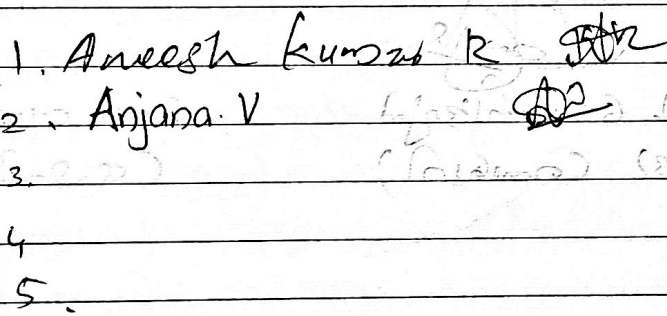 1. Aneesh Kumar R
2. Anjana. V
3.
4
5.